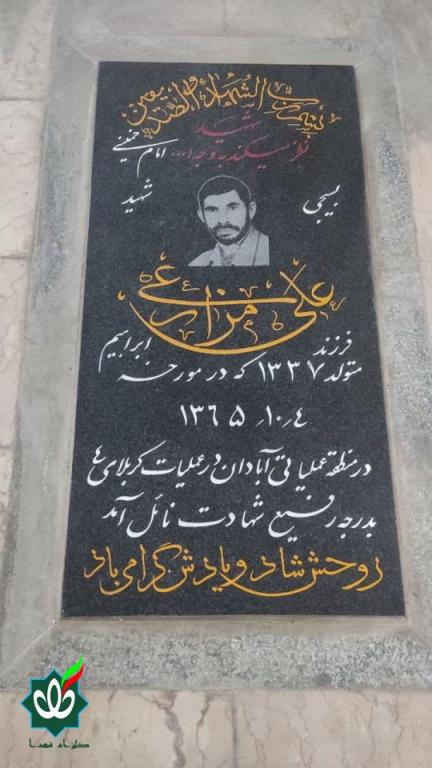 بسم رب الشهداء والصدیقین
شهید
نظر میکند به وجه ا...
امام خمینی
بسیجی
شهید
علی مزارعی
فرزند ابراهیم
متولد ۱۳۳۷ که در مورخه
۱۳۶۵٫۱۰٫٤
در منطقه عملیاتی آبادان در عملیات کربلای ٤
بدرجه رفیع شهادت نائل آمد
روحش شاد و یادش گرامی باد
گلزار شهدا